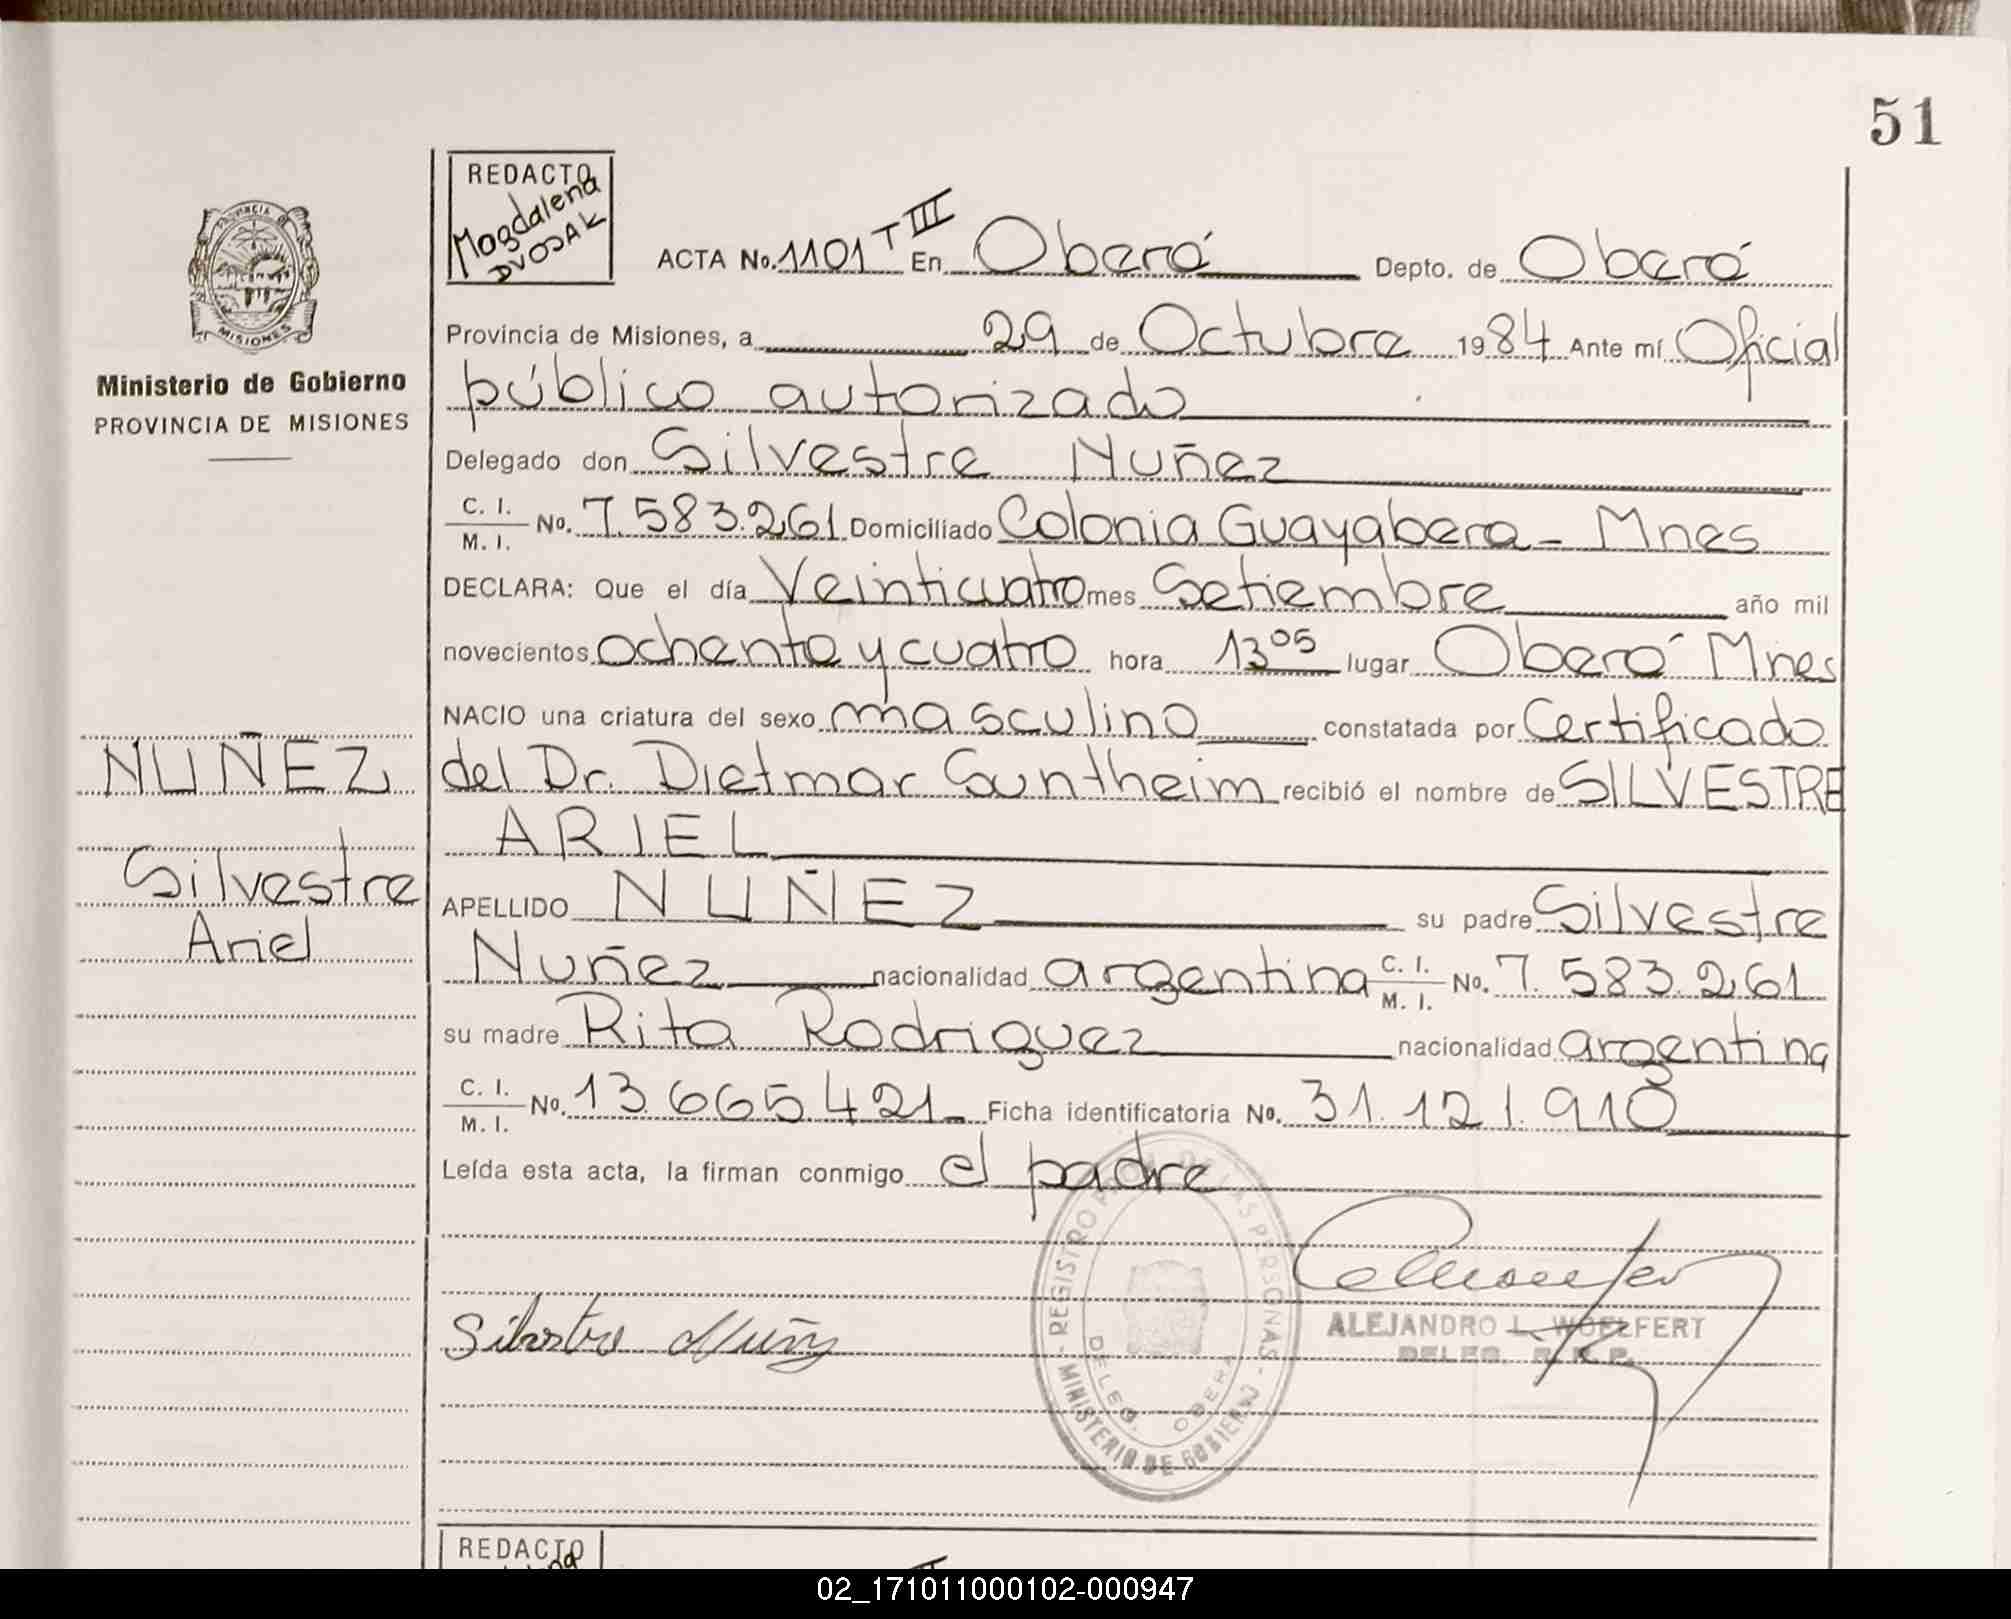 51
REDACTO
Magdalena
DVOSAK
PROVINCIA DE
MISIONES
Ministerio de Gobierno
PROVINCIA DE MISIONES
ACTA No. 1101 T III En Oberá Depto. de Oberá
Provincia de Misiones, a 29 de Octubre 1984 Ante mí Oficial
público autorizado
Delegado don Silvestre Nuñez
C. I. / M. I. No. 7.583.261 Domiciliado Colonia Guayabera - Mnes
DECLARA: Que el día Veinticuatro mes Setiembre año mil
novecientos ochenta y cuatro hora 13 05 lugar Oberá Mnes
NACIO una criatura del sexo masculino constatada por Certificado
NUÑEZ
del Dr. Dietmar Suntheim recibió el nombre de SILVESTRE
ARIEL
Silvestre
Ariel
APELLIDO NUÑEZ su padre Silvestre
Nuñez nacionalidad argentina C. I. / M. I. No. 7.583.261
su madre Rita Rodriguez nacionalidad argentina
C. I. / M. I. No. 13.665.421 Ficha identificatoria No. 31.121.910
Leída esta acta, la firman conmigo el padre
REGISTRO PROV. DE LAS PERSONAS - MINISTERIO DE GOBIERNO -
DELEG. OBERA
ALEJANDRO L. WOELFERT
DELEG. R. P. P.
REDACTO
02_171011000102-000947